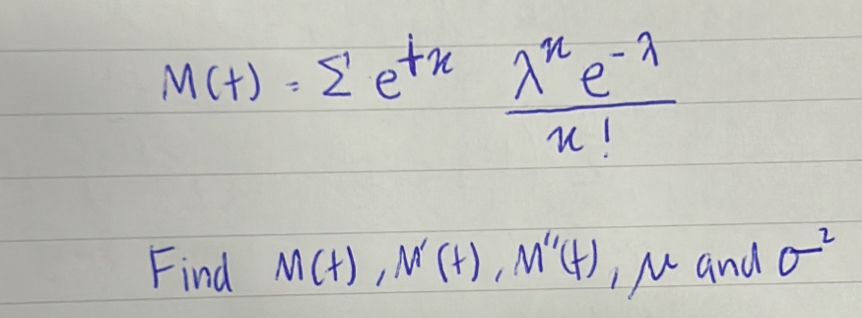 M(t) = Σ e^{tx} \frac{λ^x e^{-λ}}{x!}
Find M(t), M'(t), M''(t), μ and σ²